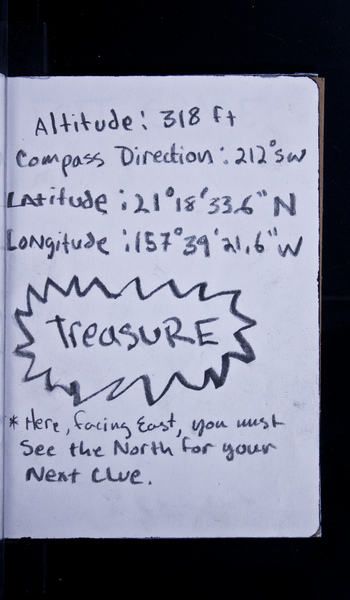 Altitude: 318 ft
Compass Direction: 212°SW
Latitude: 21°18'33.6"N
Longitude: 157°39'21.6"W
treasuRE
* Here, facing East, you must
See the North for your
Next Clue.